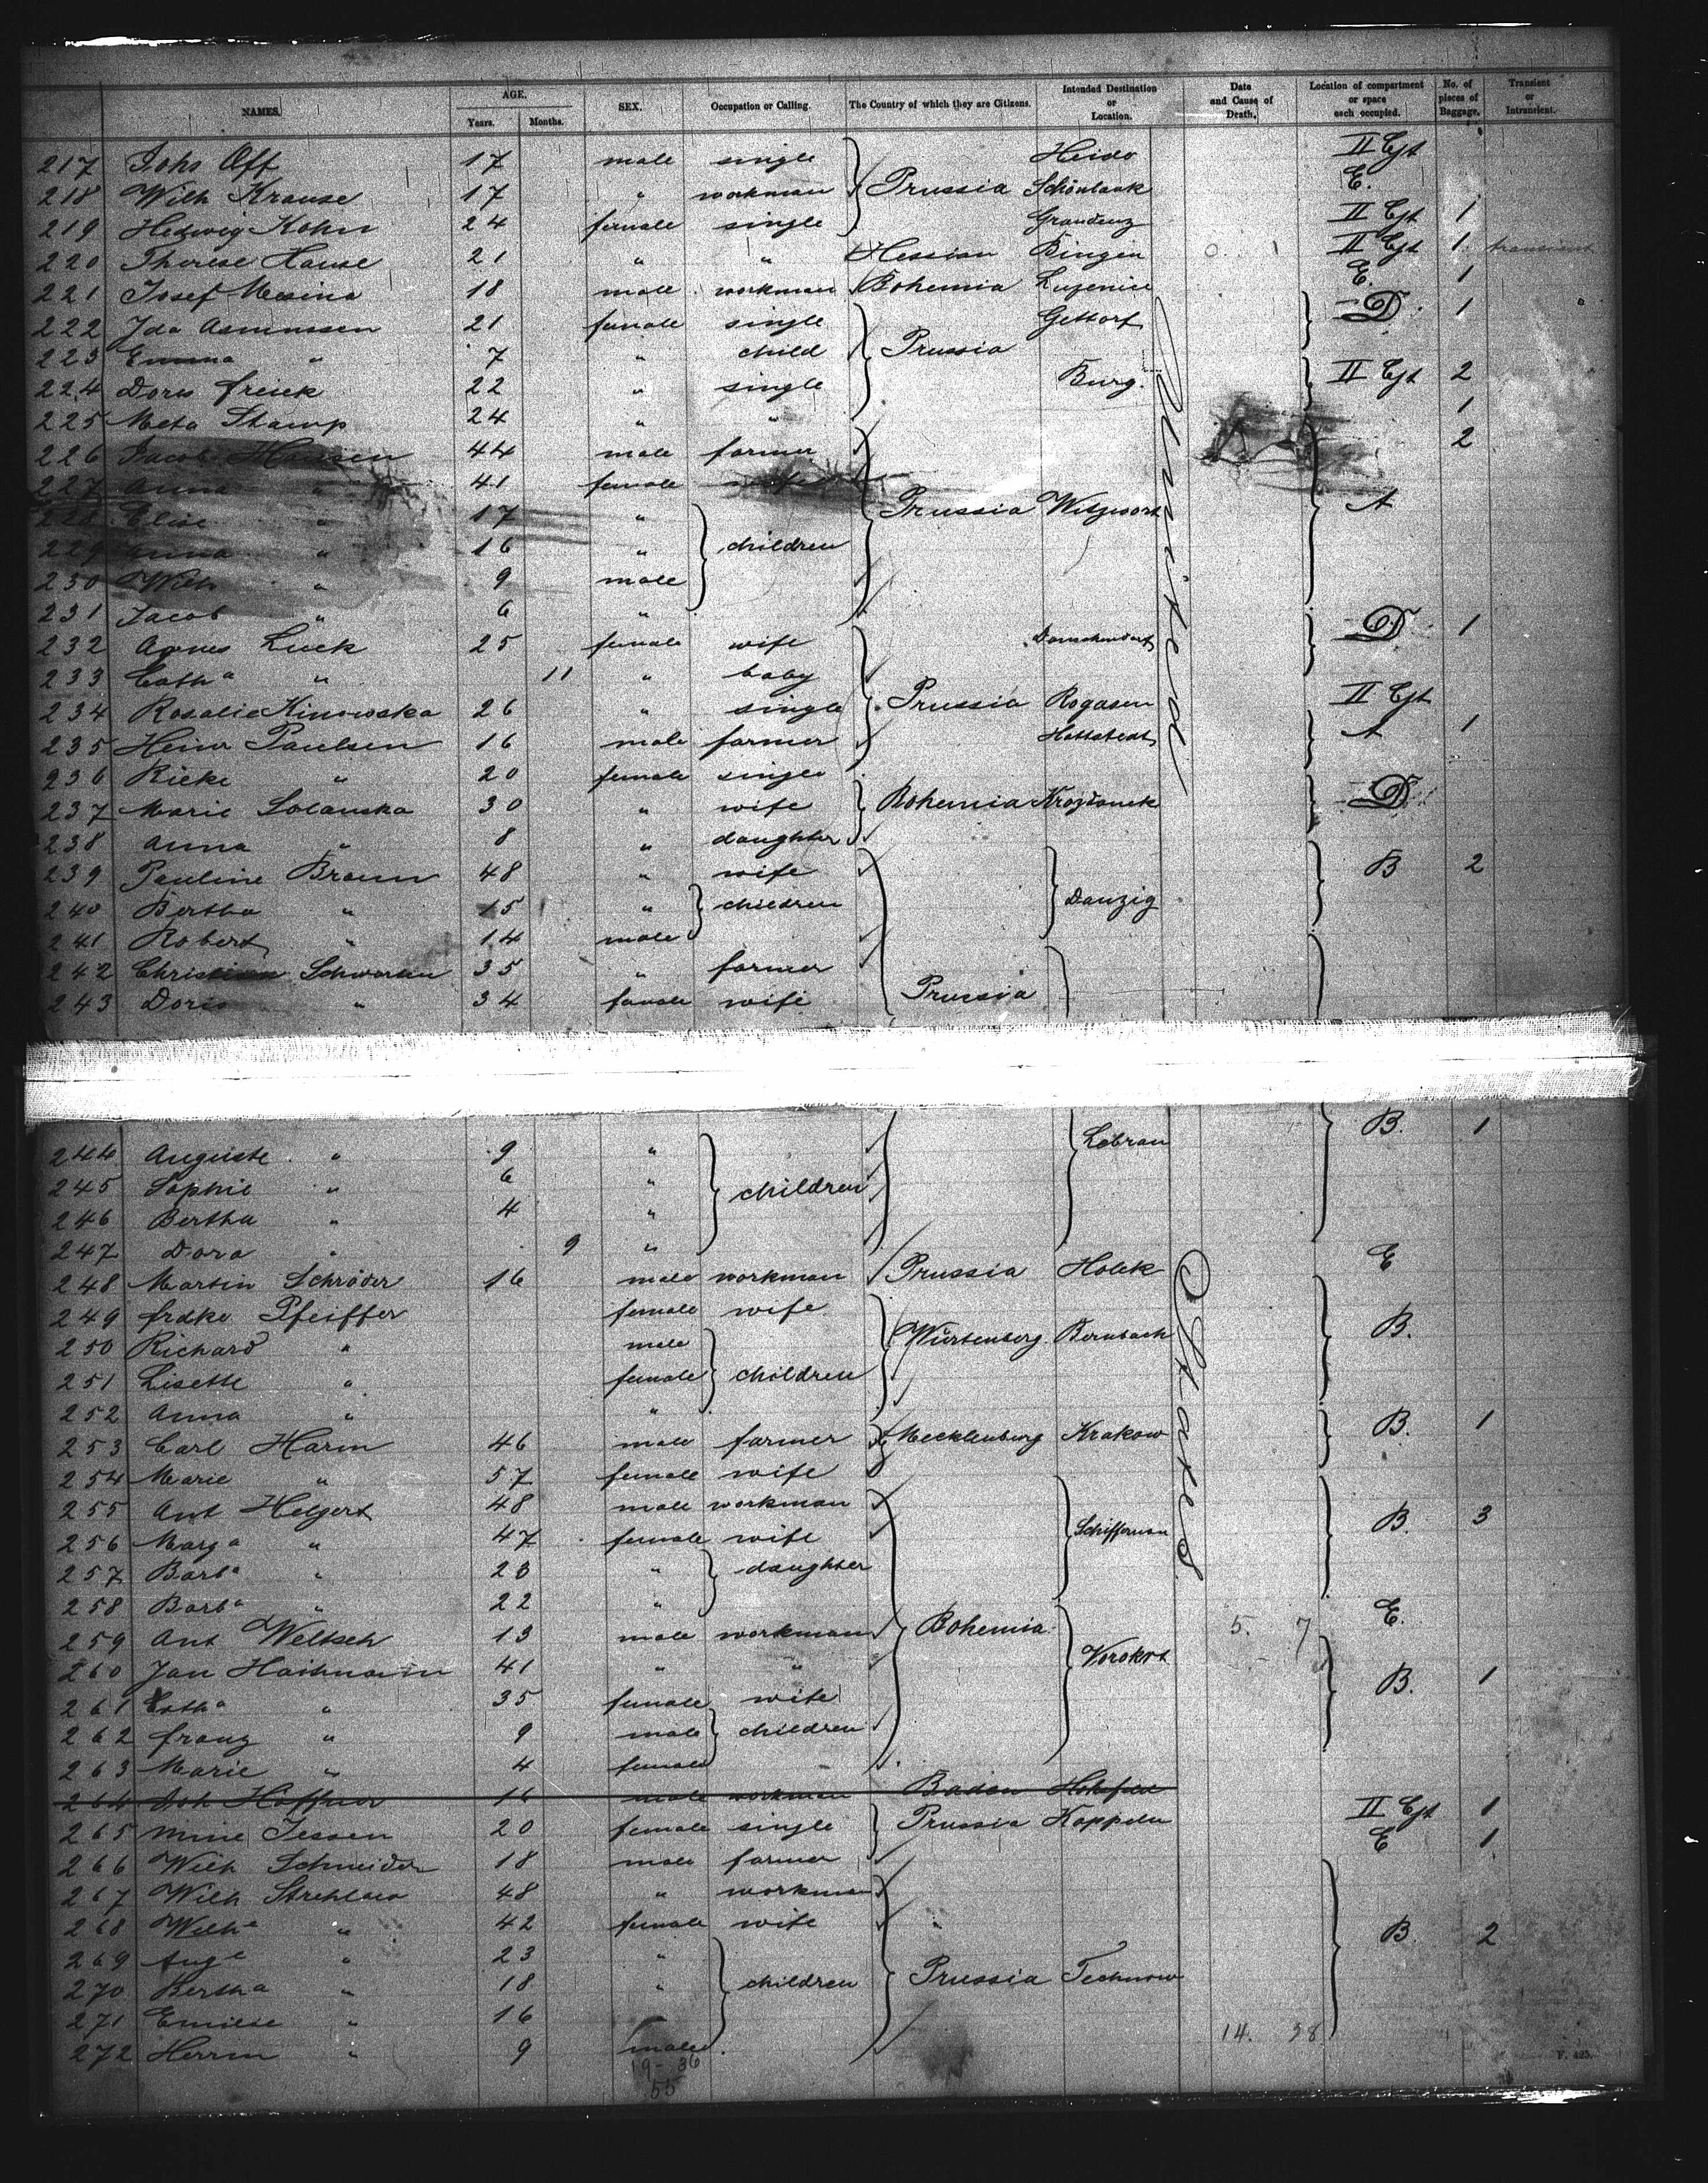 NAMES. AGE. Years. Months. SEX. Occupation or Calling. The Country of which they are Citizens. Intended Destination or Location. Date and Cause of Death. Location of compartment or space each occupied. No. of pieces of Baggage. Transient or Intransient.
217 Johs Off 17 male single Heide II Cjt
218 Wilh Krause 17 " workman Prussia Schönlank E.
219 Hedwig Kohn 24 female single Graudenz II Cjt 1
220 Therese Hause 21 " " Hessian Bingen 0 1 II Cjt 1 transient
221 Josef Mesina 18 male workman Bohemia Luzenice E. 1
222 Ida Asmussen 21 female single Gettorf D. 1
223 Emma " 7 " child Prussia
224 Dora Freick 22 " single Burg. II Cjt 2
225 Meta Stamp 24 " " 1
226 Jacob Hansen 44 male farmer 2
227 Anna " 41 female wife
228 Elise " 17 " Prussia Witzwort A
229 Anna " 16 " children
230 Wilh " 9 male
231 Jacob " 6 "
232 Agnes Luck 25 female wife D 1
233 Catha " 11 " baby
234 Rosalie Kinowska 26 " single Prussia Rogasen II Cjt
235 Heinr Paulsen 16 male farmer Hattstedt A 1
236 Rieke " 20 female single
237 Marie Solanska 30 " wife Bohemia D
238 Anna " 8 " daughter
239 Pauline Braun 48 " wife B 2
240 Bertha " 15 " children Danzig
241 Robert " 14 male
242 Christian Schwarten 35 " farmer
243 Doris " 34 female wife Prussia
Lebrau B. 1
244 Auguste " 9 "
245 Sophie " 6 " children
246 Bertha " 4 "
247 Dora " 9 "
248 Martin Schröder 16 male workman Prussia Holek E
249 Frdke Pfeiffer female wife
250 Richard " male Würtenberg. Bernbach B.
251 Lisette " female children
252 Anna " "
253 Carl Harm 46 male farmer Mecklenburg Krakow B. 1
254 Marie " 57 female wife
255 Ant Helgert 48 male workman
256 Marga " 47 female wife Schiffernau B. 3
257 Barba " 23 " daughter
258 Barba " 22 "
259 Ant Weltsch 13 male workman Bohemia 5. 7 E.
260 Jan Haihmann 41 " " Vorokrt
261 Catha " 35 female wife B. 1
262 Franz " 9 male children
263 Marie " 4 female
264 Joh Haffner 16 male workman Baden Hohsfeld
265 Mine Jessen 20 female single Prussia Kappeln II Cjt 1
266 Wilh Schneider 18 male farmer E 1
267 Wilh Strehlow 48 " workman
268 Wilhe " 42 female wife B. 2
269 Auge " 23 "
270 Bertha " 18 " children Prussia Technow
271 Emilie " 16 "
272 Herrm " 9 male 14. 38
19 - 36
55
F. 425.
United States